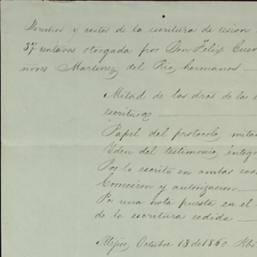 Derechos y costos de la escritura de cesion
37 centavos otorgada por Don Felix Cuev
nores Martinez del Rio, hermanos
Mitad de los dros de las
escrituras
Papel del protocolo, mitad
Eden del testimonio, integro
Por lo escrito en ambas cos
Comicion y autorizacion
Por una nota puesta en el
de la escritura cedida
Mejico, Octubre 13 de 1860.